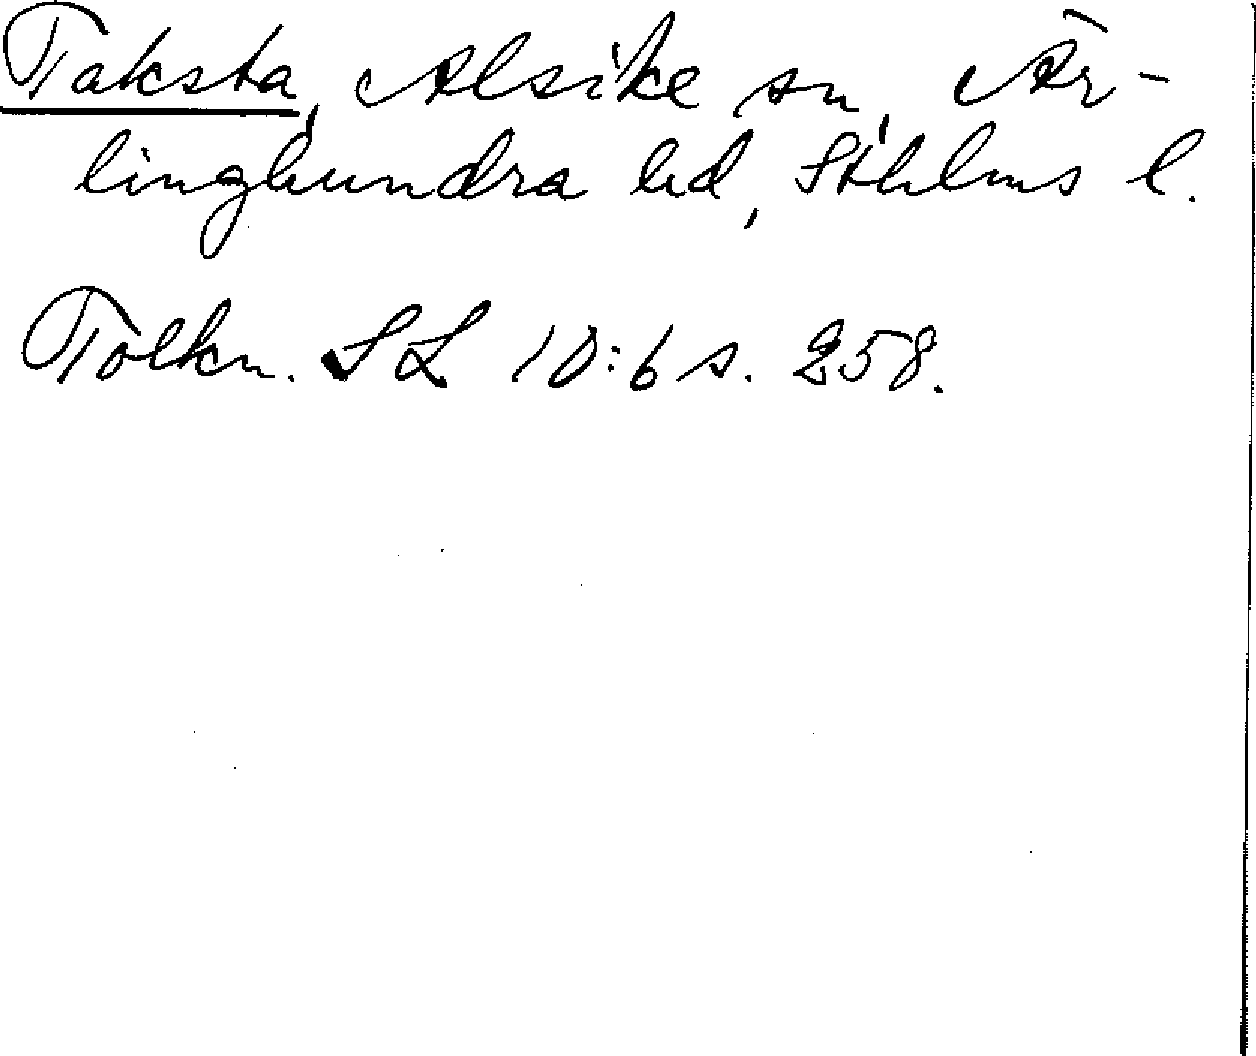 Taksta, Alsike sn, Är-
linghundra hd, Sthlms l.
Tolkn. SL 10:6 s. 258.